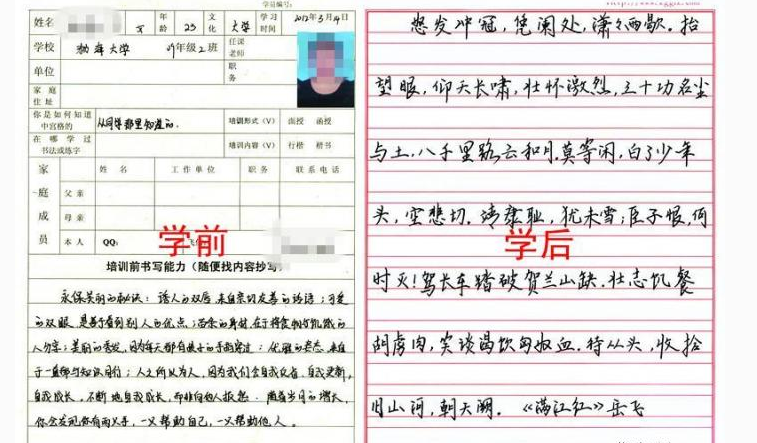 学员编号:
姓名 女 年龄 23 文化 大学 学习时间 2012年3月14日
学校 渤海大学 09年级2班 任课老师
单位 职务
家庭住址
你是如何知道中宫格的 从同学那里知道的. 培训形式（V） 面授 函授
在哪学过书法或练字 培训内容（V） 行楷 楷书
家庭成员 姓名 工作单位 职务 联系电话
父亲
母亲
本人 QQ:
学前
培训前书写能力（随便找内容抄写）
永保美丽的秘诀：诱人的双唇，来自亲切友善的话语；可爱
的双眼，是善于看到别人的优点；苗条的身材，在于将食物与饥饿的
人分享；美丽的秀发，因为每天都有孩子的手指穿过；优雅的姿态，来自
于一直都与知识同行；人之所以为人，因为我们会自我反省，自我更新，
自我成长，不断地自我成长，却非向他人报怨．随着岁月的增大，
你会发现你有两只手，一只帮助自己，一只帮助他人．
怒发冲冠，凭阑处，潇々雨歇．抬
望眼，仰天长啸，壮怀激烈，三十功名尘
与土，八千里路云和月．莫等闲，白了少年
头，空悲切．靖康耻，犹未雪；臣子恨，何
学后
时灭！驾长车踏破贺兰山缺．壮志饥餐
胡虏肉，笑谈渴饮匈奴血．待从头，收拾
旧山河，朝天阙．《满江红》岳飞